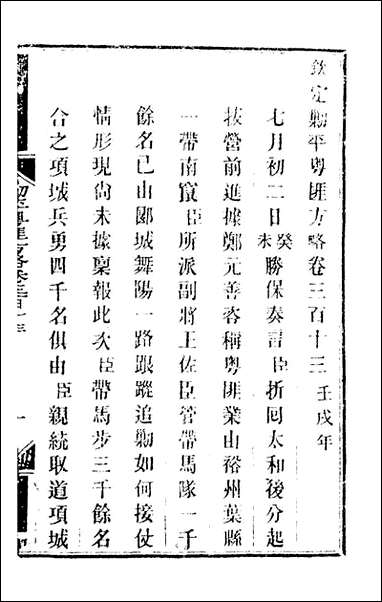 欽定勦平粵匪方略卷三百十三壬戌年
七月初二日癸未勝保奏言臣折囘太和後分起
拔營前進據鄭元善咨稱粵匪業由裕州葉縣
一帶南竄臣所派副將王佐臣管帶馬隊一千
餘名已由郾城舞陽一路跟蹤追勦如何接仗
情形現尙未據稟報此次臣帶馬步三千餘名
合之項城兵勇四千名俱由臣親統取道項城